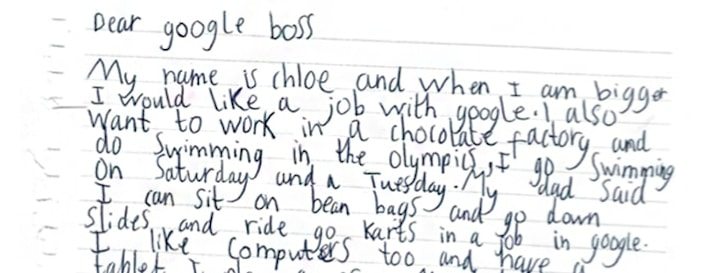 Dear google boss
My name is chloe and when I am bigger
I would like a job with google. I also
want to work in a chocolate factory and
do swimming in the olympics, I go swimming
on Saturday and a Tuesday. My dad said
I can sit on bean bags and go down
slides and ride go karts in a job in google.
I like computers too and have a
tablet I